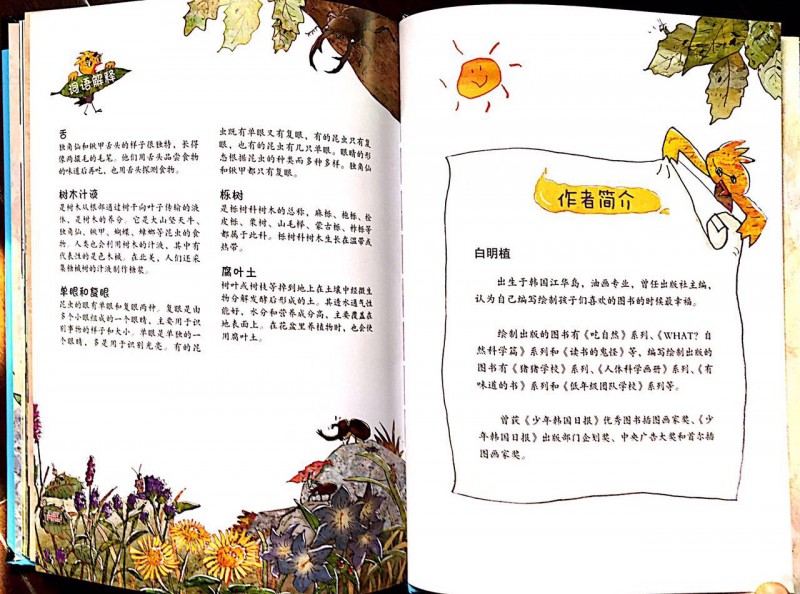 词语解释
舌
独角仙和锹甲舌头的样子很独特，长得
像两撮毛的毛笔。他们用舌头品尝食物
的味道后再吃，也用舌头探测食物。
树木汁液
是树木从根部通过树干向叶子传输的液
体，是树木的养分。它是大山坚天牛、
独角仙、锹甲、蝴蝶、蟑螂等昆虫的食
物。人类也会利用树木的汁液，其中有
代表性的是色木槭。在北美，人们还采
集独械树的汁液制作糖浆。
单眼和复眼
昆虫的眼有单眼和复眼两种。复眼是由
多个小眼组成的一个眼睛，主要用于识
别事物的样子和大小。单眼是单独的一
个眼睛，多是用于识别光亮。有的昆
虫既有单眼又有复眼，有的昆虫只有复
眼，也有的昆虫有几只单眼。眼睛的形
态根据昆虫的种类而多种多样。独角仙
和锹甲都只有复眼。
栎树
是栎树科树木的总称，麻栎、枹栎、栓
皮栎、栗树、山毛榉、蒙古栎、柞栎等
都属于此科。栎树科树木生长在温带或
热带。
腐叶土
树叶或树枝等掉到地上在土壤中经微生
物分解发酵后形成的土。其透水透气性
能好，水分和营养成分高，主要覆盖在
地表面上。在花盆里养植物时，也会使
用腐叶土。
作者简介
白明植
出生于韩国江华岛，油画专业，曾任出版社主编，
认为自己编写绘制孩子们喜欢的图书的时候最幸福。
绘制出版的图书有《吃自然》系列、《WHAT？自
然科学篇》系列和《读书的鬼怪》等，编写绘制出版的
图书有《猪猪学校》系列、《人体科学画册》系列、《有
味道的书》系列和《低年级团队学校》系列等。
曾获《少年韩国日报》优秀图书插图画家奖、《少
年韩国日报》出版部门企划奖、中央广告大奖和首尔插
图画家奖。